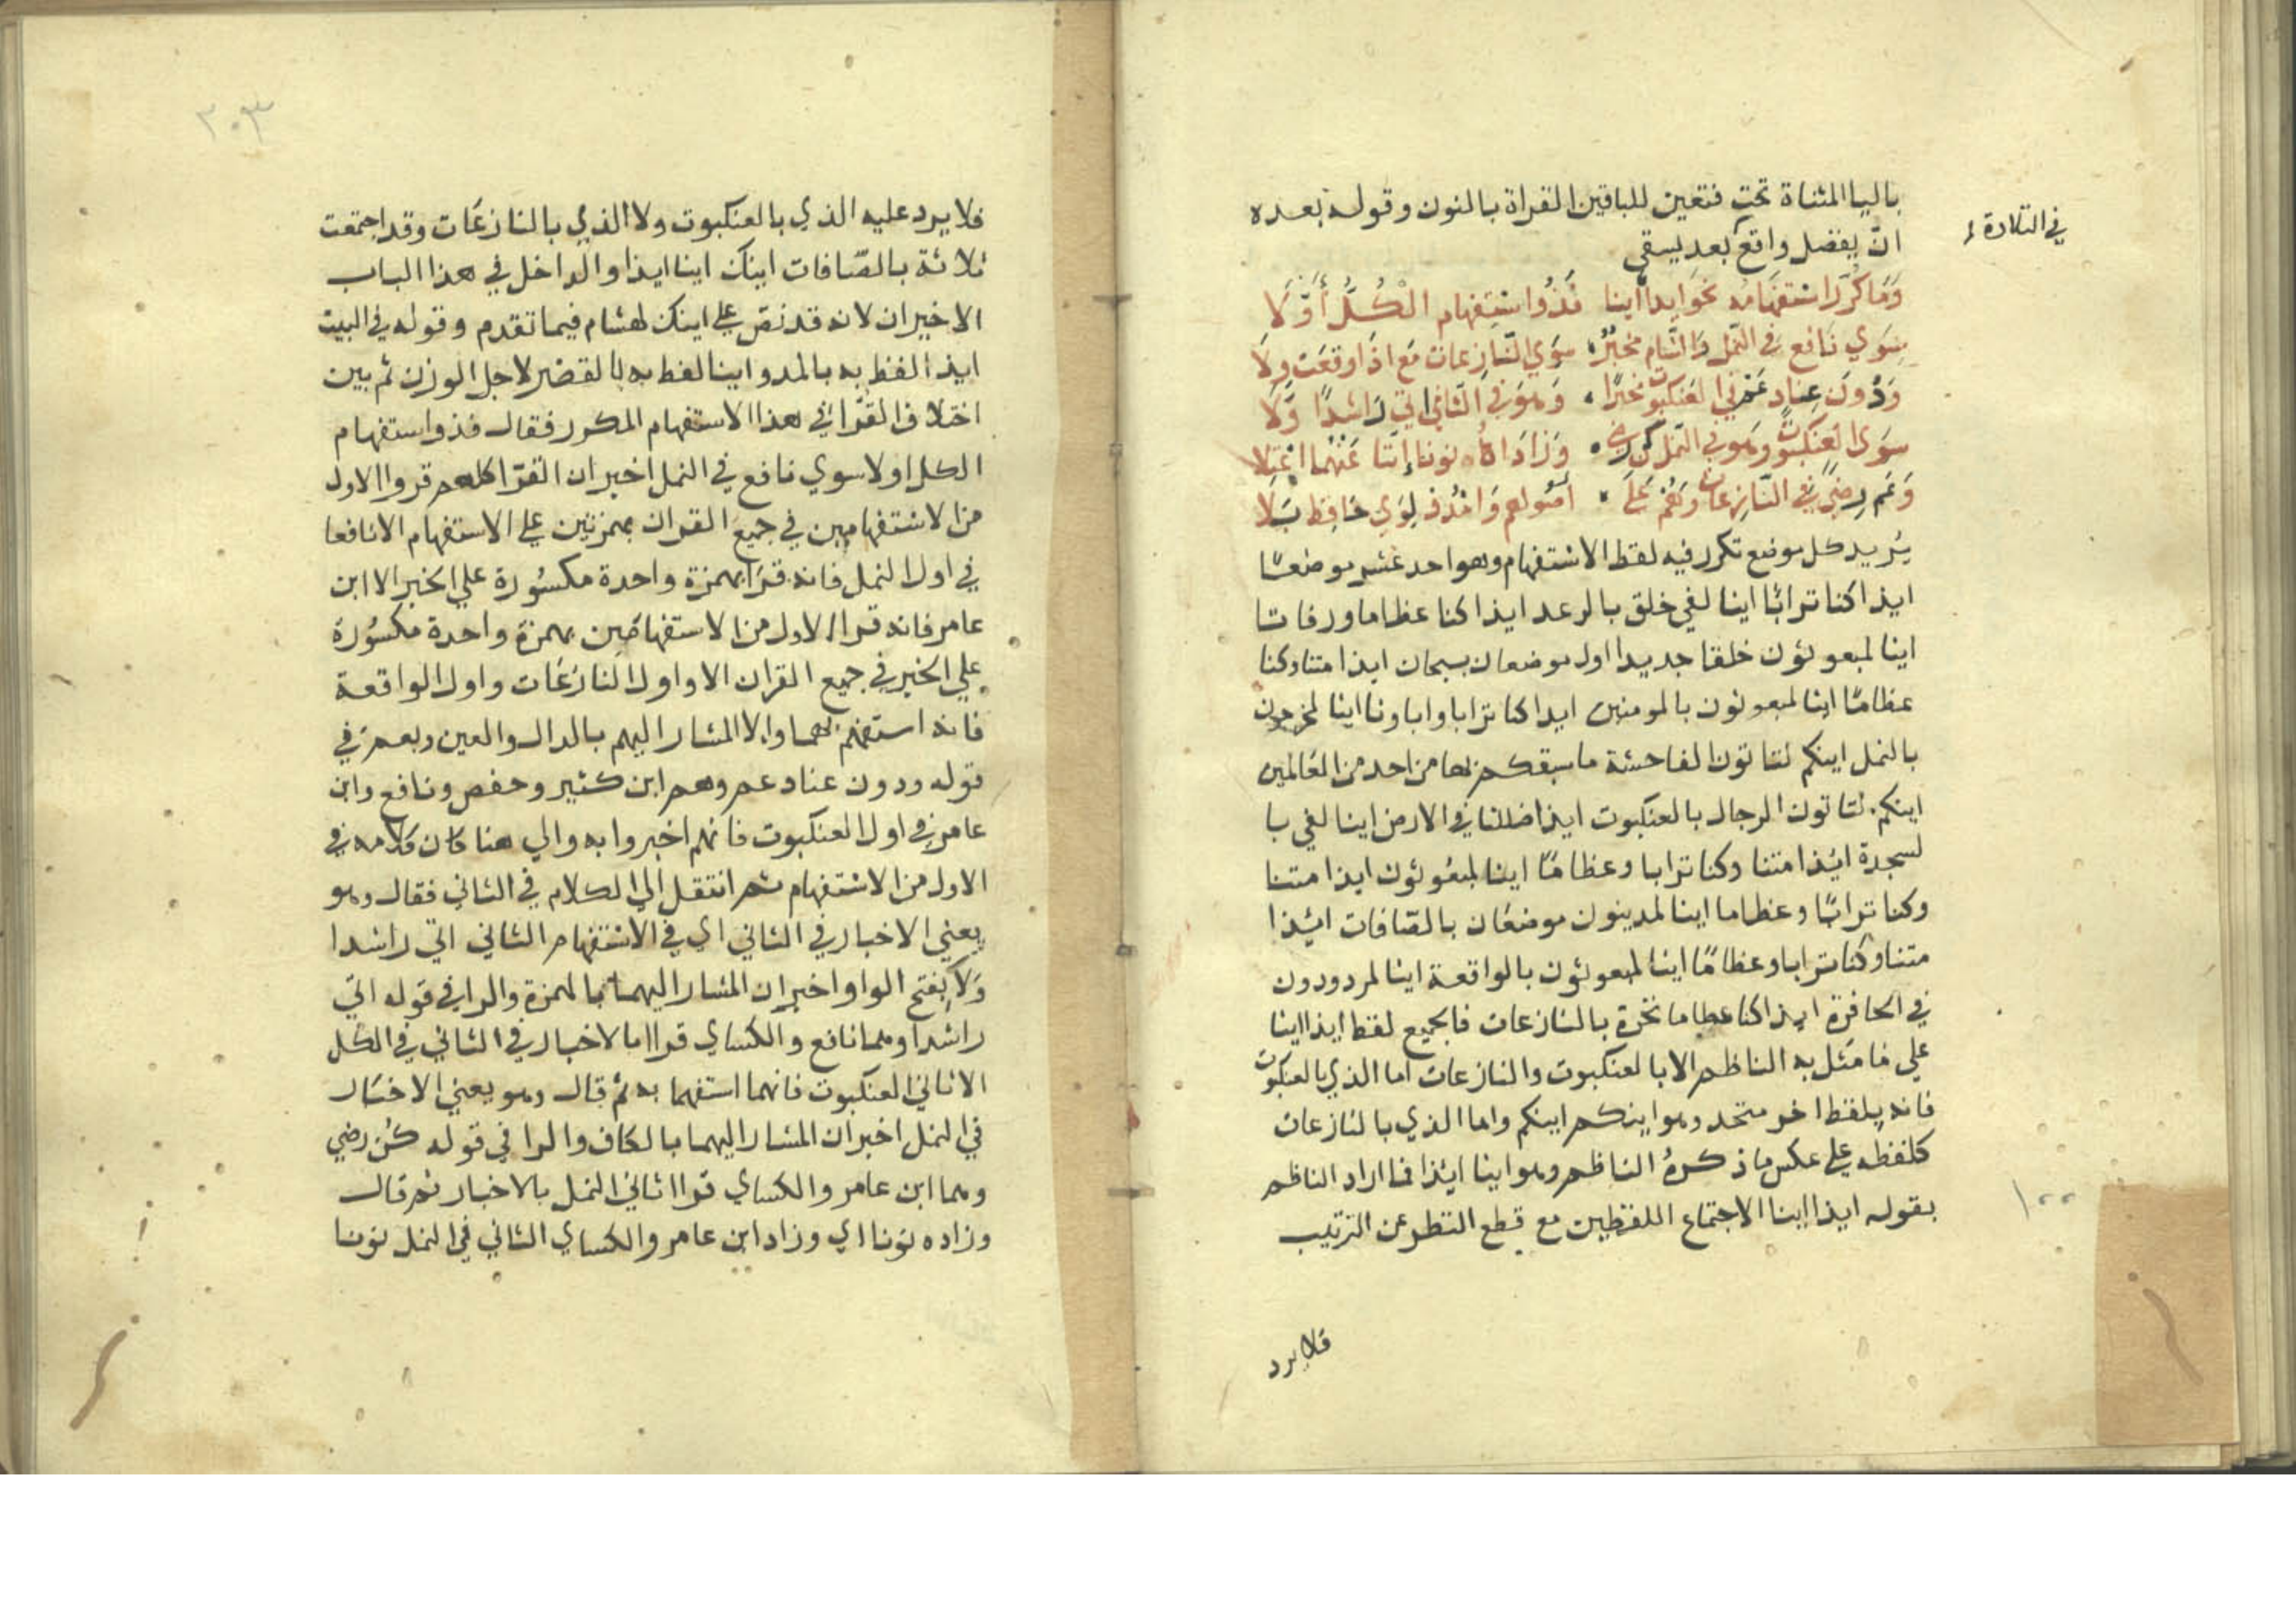 باليا المثناة تحت فتعين للباقين القراة بالنون وقوله بعده
في التلاوة
انّ يفضل واقع بعد يسقي
وَمَا كُرّرَ استفهامُه نحوَ ايذا أينا فَذُوا استِفهام الْكُلُّ أَوَّلَا
سِوَي نَافع في النّمل وَالشّام مخبرٌ سوَي النّازِعات مَع اذَا وقعَت وِلَا
وَدُونَ عِنادٍ عَمّ في العَنكبُوت مُخبرًا وَهوَ في الثّاني اتي رَاشدًا وَلَا
سِوَى العَنكبُوتِ وهو في النّمل كن رضي وَزَادَاهُ نونا إنّنا عَنْهُما اعْتَلَا
وَعَم رِضيً في النّازِعاتِ وَهُمْ عَلَي اصُولهم وَامْدُد لِوَي حَافظٍ بَلَا
يُريد كل موضع تكرر فيه لفظ الاستفهام وهو احد عشر موضعًا
ايذا كنا ترابًا اينا لفي خلق بالرعد ايذا كنا عظاما ورفاتا
اينا لمبعوثون خلقا جديدا اول موضعان بسبحان ايذا متنا وكنا
عظامًا اينا لمبعوثون بالمومنين ايذا كنا ترابا واباونا اينا لمخرجون
بالنمل اينكم لتاتون الفاحشة ما سبقكم بها من احد من العَالمين
اينكم لتاتون الرجال بالعنكبوت ايذا ضللنا في الارض اينا لفي با
لسجدة ائذا متنا وكنا ترابا وعظامًا اينا لمبعُوثون ايذا متنا
وكنا ترابًا وعظاما اينا لمدينون موضعَان بالصّافات ائذا
متنا وكنا ترابا وعظامًا اينا لمبعوثون بالواقعة اينا لمردودون
في الحافرة ايذا كنا عظاما نخرة بالنازعات فالجميع لفظ ايذا اينا
علي ما مَثل به الناظم الا بالعنكبوت والنازعات اما الذي بالعنكبوت
فانه بلفظ اخر متحد وهو اينكم اينكم واما الذي بالنازعات
كلفظه علي عكس ما ذكرهُ الناظم وهو اينا ائذا فما اراد الناظم
بقوله ايذا اينا الاجتماع اللفظين مع قطع النظر عن الترتيب
١٠٠
فلا يرد
٢٠٣
فلا يرد عليه الذي بالعنكبوت ولا الذي بالنازعَات وقد اجتمعت
ثلاثة بالصّافات اينك اينا ايذا والداخل في هذا الباب
الاخيران لانه قد نصّ علي اينك لهشام فيما تقدم وقوله في البيت
ايذا لفظ به بالمد واينا لفظ به بالقصر لاجل الوزن ثم بين
اختلاف القرّا في هذا الاستفهام المكرر فقال فذوا استفهام
الكل اولا سوي نافع في النمل اخبر ان القرّا كلهم قروا الاول
من الاستفهامين في جميع القران بهمزتين علي الاستفهام الا نافعا
في اول النمل فانه قرَا بهمزة واحدة مكسُورة علي الخبر الا ابن
عامر فانه قرا الاول من الاستفهامَين بهمزة واحدة مكسُورة
علي الخبر في جميع القران الا واول النازعَات واول الواقعة
فانه استفهم بهما والا المشار اليهم بالدال والعين وبعم في
قوله ودون عناد عم وهم ابن كثير وحفص ونافع وابن
عامر في اول العنكبوت فانهم اخبروا به والي هنا كان كلامه في
الاول من الاستفهام ثم انتقل الي الكلام في الثاني فقال وهو
يعني الاخبار في الثاني اي في الاستفهام الثاني اتي راشدا
وَلا بفتح الواو اخبر ان المشار اليهما بالهمزة والرا في قوله اتي
راشدا وهما نافع والكساي قراا بالاخبار في الثاني في الكل
الا ثاني العنكبوت فانهما استفهما به ثم قال وهو يعني الاخبَار
في النمل اخبر ان المشار اليهما بالكاف والرا في قوله كُن رضي
وهما ابن عامر والكساي قراا ثاني النمل بالاخبار ثم قال
وزاده نونا اي وزاد ابن عامر والكساي الثاني في النمل نونا